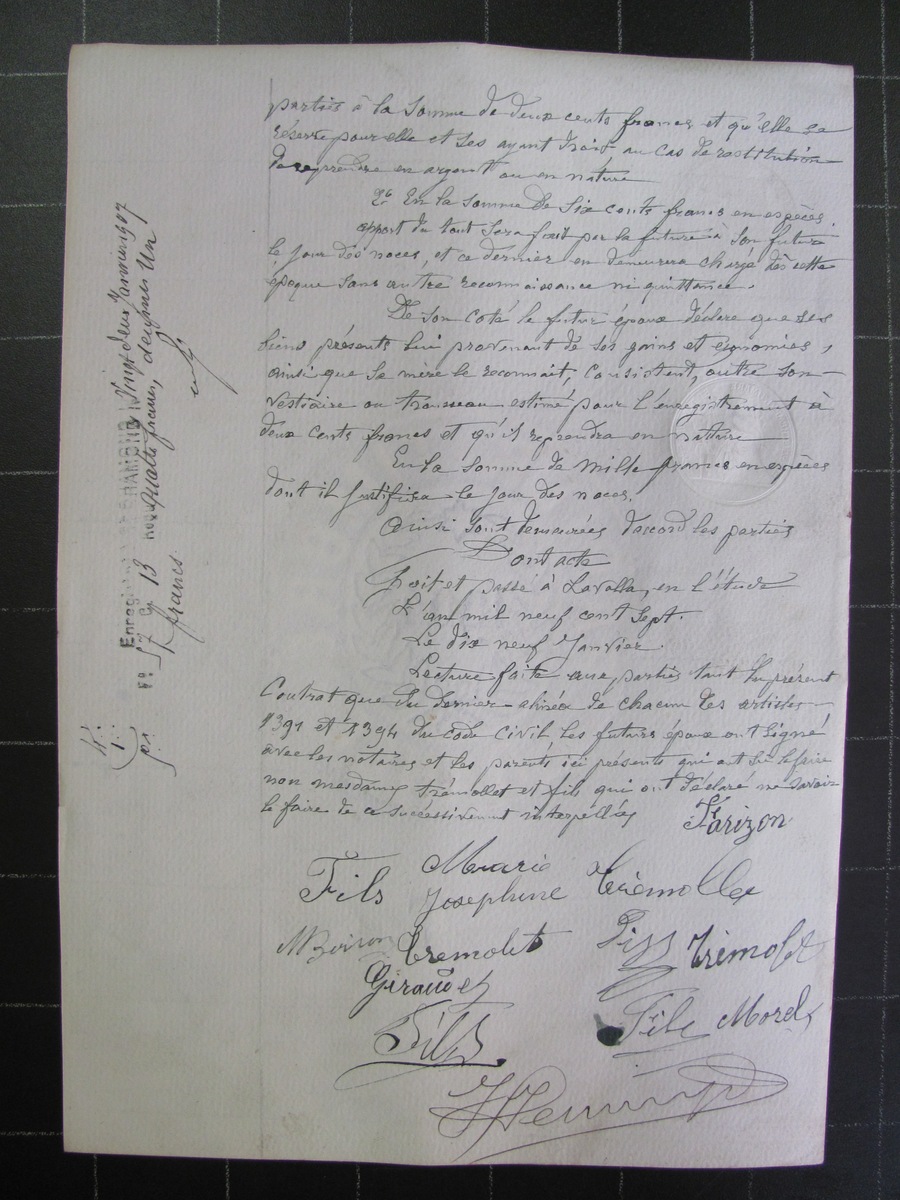 parties à la somme de deux cents francs et qu'elle se
réserve pour elle et ses ayant droit au cas de restitution
de reprendre en argent ou en nature
2° En la somme de six cents francs en espèces
apport du tout sera fait par la future à son futur
le jour des noces, et ce dernier en demeurera chargé dès cette
époque sans autre reconnaissance ni quittance.
De son coté le futur époux déclare que ses
biens présents lui provenant de ses gains et économies,
ainsi que sa mère le reconnait, consistent, outre son
vestiaire ou trousseau estimé pour l'enregistrement à
deux cents francs et qu'il reprendra en nature
En la somme de mille francs en espèces
dont il justifiera le jour des noces.
Ainsi sont demeurées d'accord les parties
Dont acte
Fait et passé à Lavalla, en l'étude
L'an mil neuf cent sept.
Le dix neuf Janvier.
Lecture faite aux parties tant du présent
Contrat que du dernier alinéa de chacun des articles
1391 et 1394 du code civil les futurs époux ont signé
avec les notaires et les parents ici présents qui ont su le faire
non mesdames Trémollet et fils qui ont déclaré ne savoir
le faire de ce successivement interpellés
Farizon
Fils Marie Josephine Trémollet
Tremolet
Trémolet
Giraudet
Fils
Fils Morel
Enregistré ST CHAMOND Vingt deux Janvier 1907
F° 57 C 13 quatre francs, decimes Un
franc